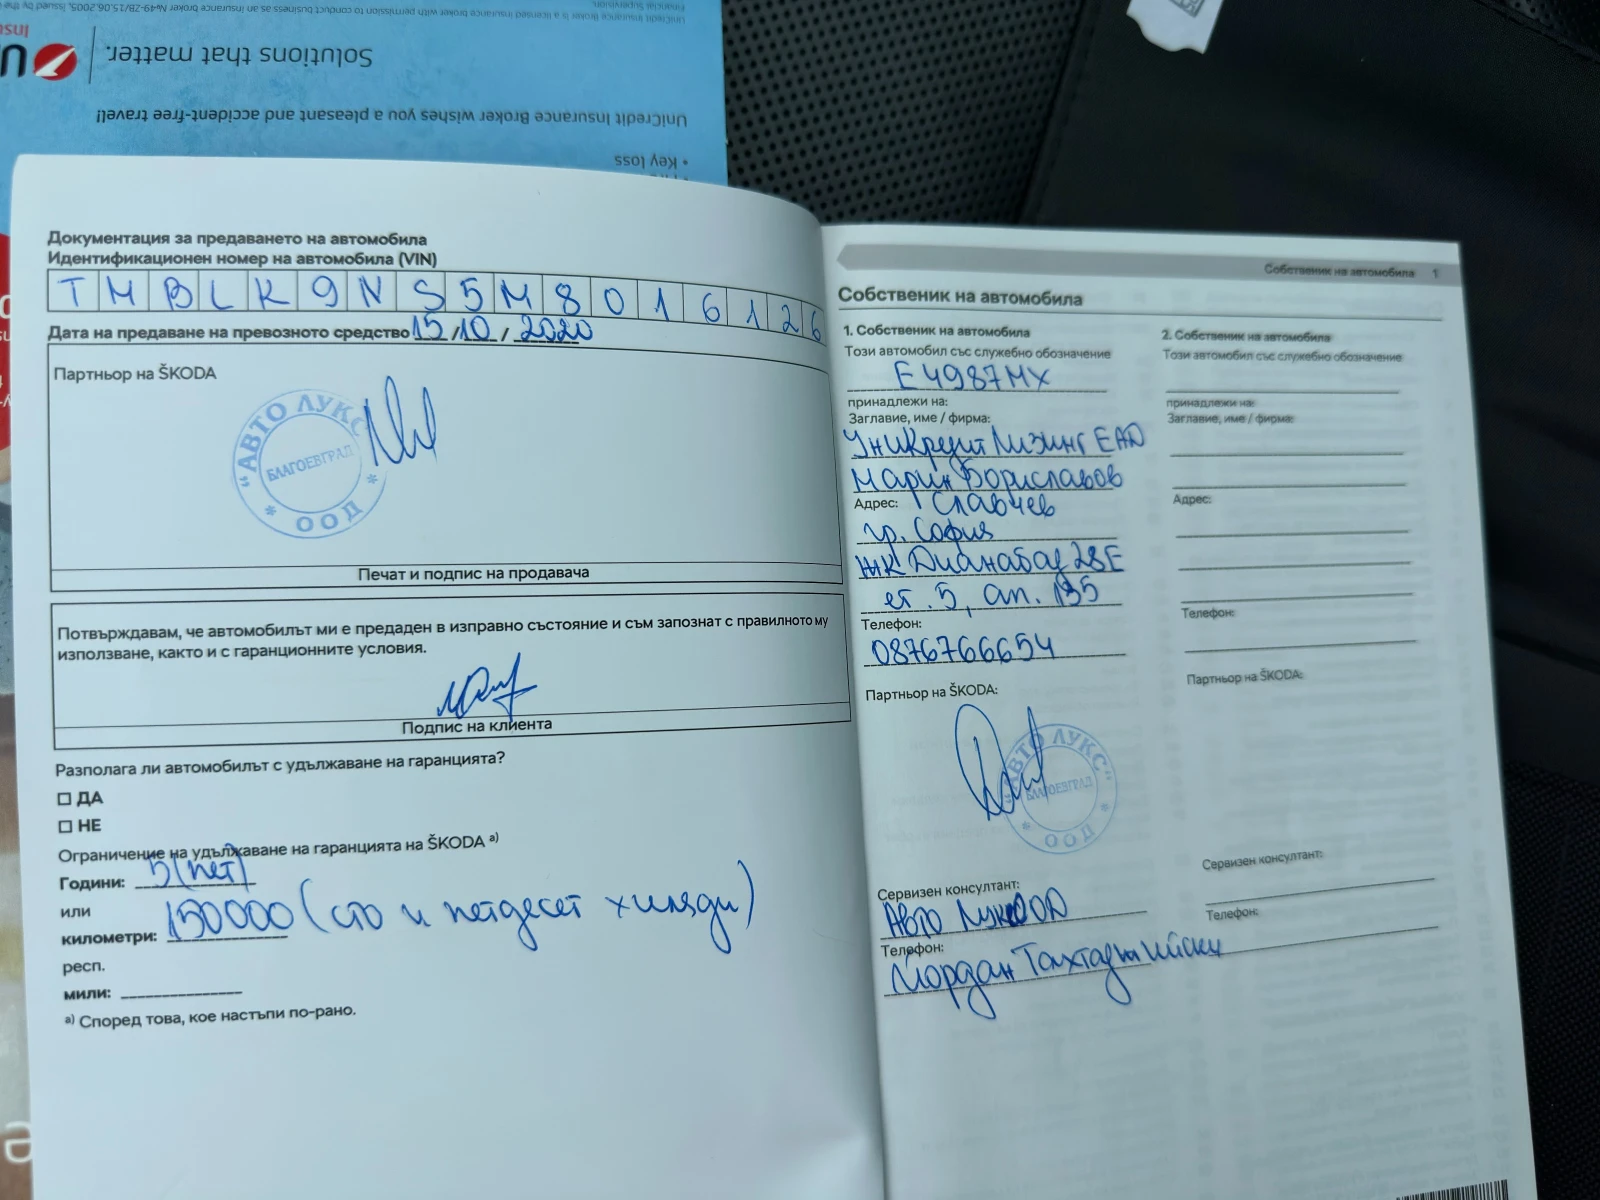 UniCredit Insurance Broker is a licensed insurance broker with permission to conduct business as an insurance broker №49-ZB/15.06.2005, issued by the
Financial Supervision.
Solutions that matter.
UniCredit Insurance Broker wishes you a pleasant and accident-free travel!
• Key loss
Документация за предаването на автомобила
Идентификационен номер на автомобила (VIN)
TMBLK9NS5M8016126
Дата на предаване на превозното средство 15/10/2020
Партньор на ŠKODA
"АВТО ЛУКС"
БЛАГОЕВГРАД
* ООД *
Печат и подпис на продавача
Потвърждавам, че автомобилът ми е предаден в изправно състояние и съм запознат с правилното му
използване, както и с гаранционните условия.
Подпис на клиента
Разполага ли автомобилът с удължаване на гаранцията?
ДА
НЕ
Ограничение на удължаване на гаранцията на ŠKODA a)
Години: 5 (пет)
или
километри: 150000 (сто и петдесет хиляди)
респ.
мили:
a) Според това, кое настъпи по-рано.
Собственик на автомобила 1
Собственик на автомобила
1. Собственик на автомобила
Този автомобил със служебно обозначение
Е4987МХ
принадлежи на:
Заглавие, име / фирма:
Уникредит Лизинг ЕАД
Марин Бориславов
Адрес: Славчев
гр. София
жк Дианабад 28Е
ет. 5, ап. 135
Телефон:
0876766654
Партньор на ŠKODA:
"АВТО ЛУКС"
БЛАГОЕВГРАД
* ООД *
Сервизен консултант:
Авто Лукс ООД
Телефон:
Йордан Тахтаджийски
2. Собственик на автомобила
Този автомобил със служебно обозначение
принадлежи на:
Заглавие, име / фирма:
Адрес:
Телефон:
Партньор на ŠKODA:
Сервизен консултант:
Телефон: